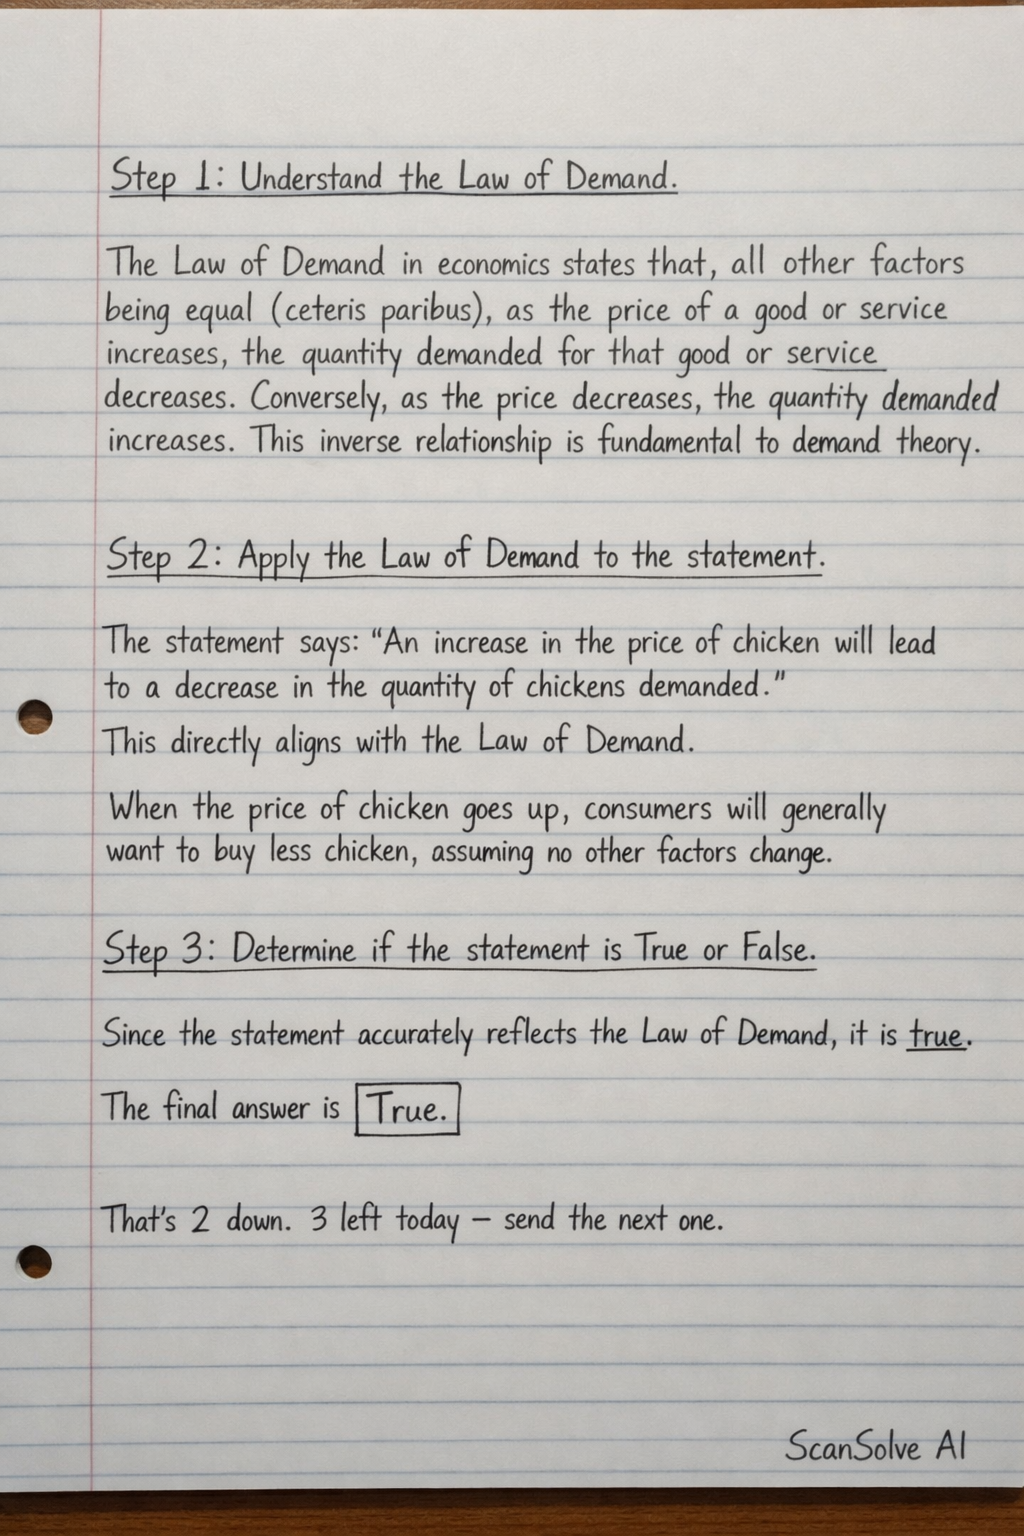 Step 1: Understand the Law of Demand.
The Law of Demand in economics states that, all other factors
being equal (ceteris paribus), as the price of a good or service
increases, the quantity demanded for that good or service
decreases. Conversely, as the price decreases, the quantity demanded
increases. This inverse relationship is fundamental to demand theory.
Step 2: Apply the Law of Demand to the statement.
The statement says: “An increase in the price of chicken will lead
to a decrease in the quantity of chickens demanded.”
This directly aligns with the Law of Demand.
When the price of chicken goes up, consumers will generally
want to buy less chicken, assuming no other factors change.
Step 3: Determine if the statement is True or False.
Since the statement accurately reflects the Law of Demand, it is true.
The final answer is True.
That's 2 down. 3 left today – send the next one.
ScanSolve AI